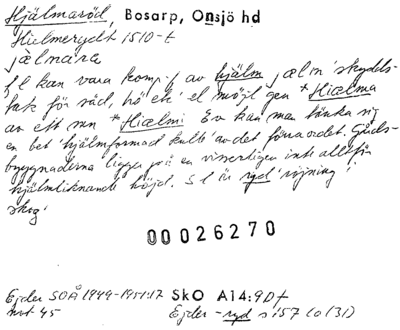 Hjälmaröd, Bosarp, Onsjö hd
Hielmerydt 1510-t
jælmara
Fl kan vara komp. f. av hjälm jælm 'skydds-
tak för säd, hö ek' el möjl gen *Hiælma
av ett mn *Hiælmi Ev kan man tänka sig
en bet 'hjälmformad kulle' av det förra ordet. Gårds-
byggnaderna ligger på en visserligen inte alltför
hjälmliknande höjd. Sl är ryd 'röjning i
skog'
00026270
Ejder SOÅ 1949-1951:17 SkO A14:9 Df
not 45 Ejder -ryd s 157 (o 131)